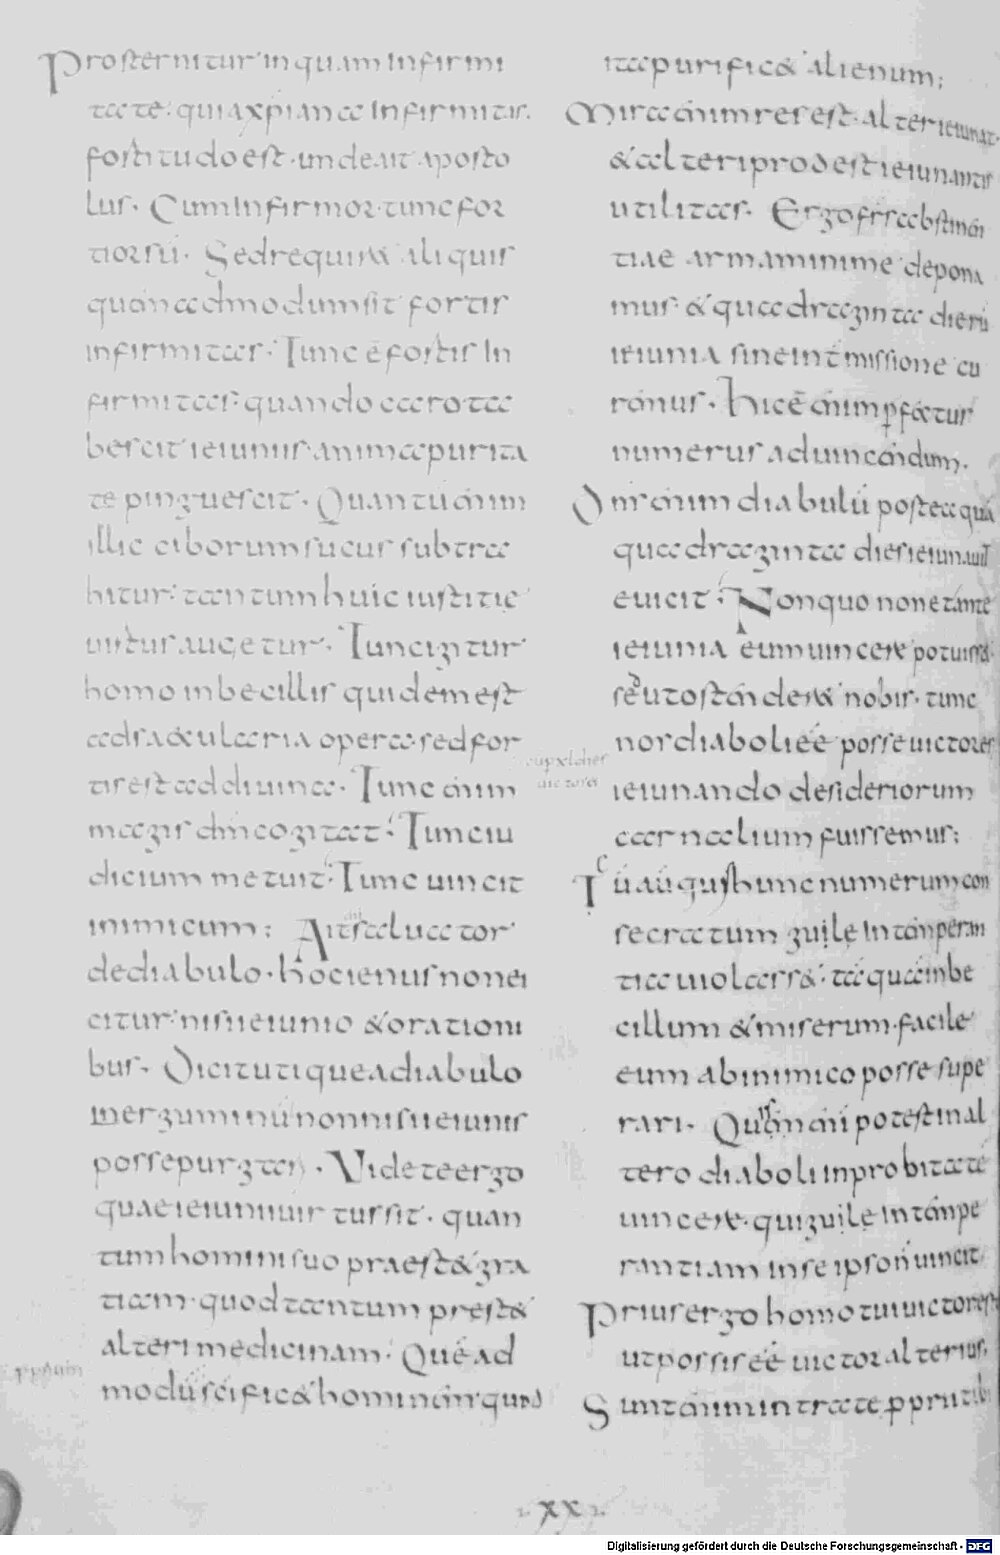 Prosternitur inquam infirmi
tate· quia xpiana infirmitas·
fortitudo est· unde ait aposto
lus· Cum infirmor· tunc for
tior sū· Sed requiret aliquis
quemadmodum sit fortis
infirmitas· Tunc ē fortis in
firmitas· quando caro ta
bescit ieiuniis· anima purita
te pinguescit· Quantū enim
illic ciborum sucus subtra
hitur· tantum huic iustitie
uirtus augetur· Tunc igitur
homo inbecillis quidem est
ad saecularia opera· sed for
tis est ad diuina· Tunc enim
magis dm̄ cogitat· Tunc iu
dicium metuit· Tunc uincit
inimicum; Ait saluator
de diabulo· hoc genus non ei
citur· nisi ieiunio & orationi
bus· Dicit utique a diabulo
mergumīnū non nisi ieiuniis
posse purgari· Videte ergo
quae ieiunii uirtus sit· quan
tum homini suo praest& gra
tiam· quod tantum prest&
alteri medicinam· Quē ad
modū scific& hominem· quod
ita purific& alienum;
Mira enim res est· alter ieiunat·
& alteri prodest ieiunantis
utilitas· Ergo frs abstinen
tiae arma minime depona
mus· & quadraginta dierū
ieiunia sine int̄missione cu
remus· hic ē enim p̄fectus
numerus ad uincendum·
Dn̄s enim diabulū postea quā
quadraginta dies ieiunauit
euicit· Non quo non et ante
ieiunia eum uincere potuiss&
sed ut ostenderet nobis· tunc
nos diaboli eē posse uictores
eum p xl dies
uictores
ieiunando desideriorum
carnalium fuissemus;
Tū aū quis hunc numerum con
secratum guile intemperan
tia uiolass&· tāquā inbe
cillum & miserum· facile
eum ab inimico posse supe
rari· Quēm em̄ potest in al
tero diaboli inprobitatē
uincere· qui guile intempe
rantiam in se ipso n̄ uincit·
Prius ergo homo tui uictor esto
ut possis eē uictor alterius·
Sunt enim intra te p̄prii tibi
·xx·
Digitalisierung gefördert durch die Deutsche Forschungsgemeinschaft - DFG